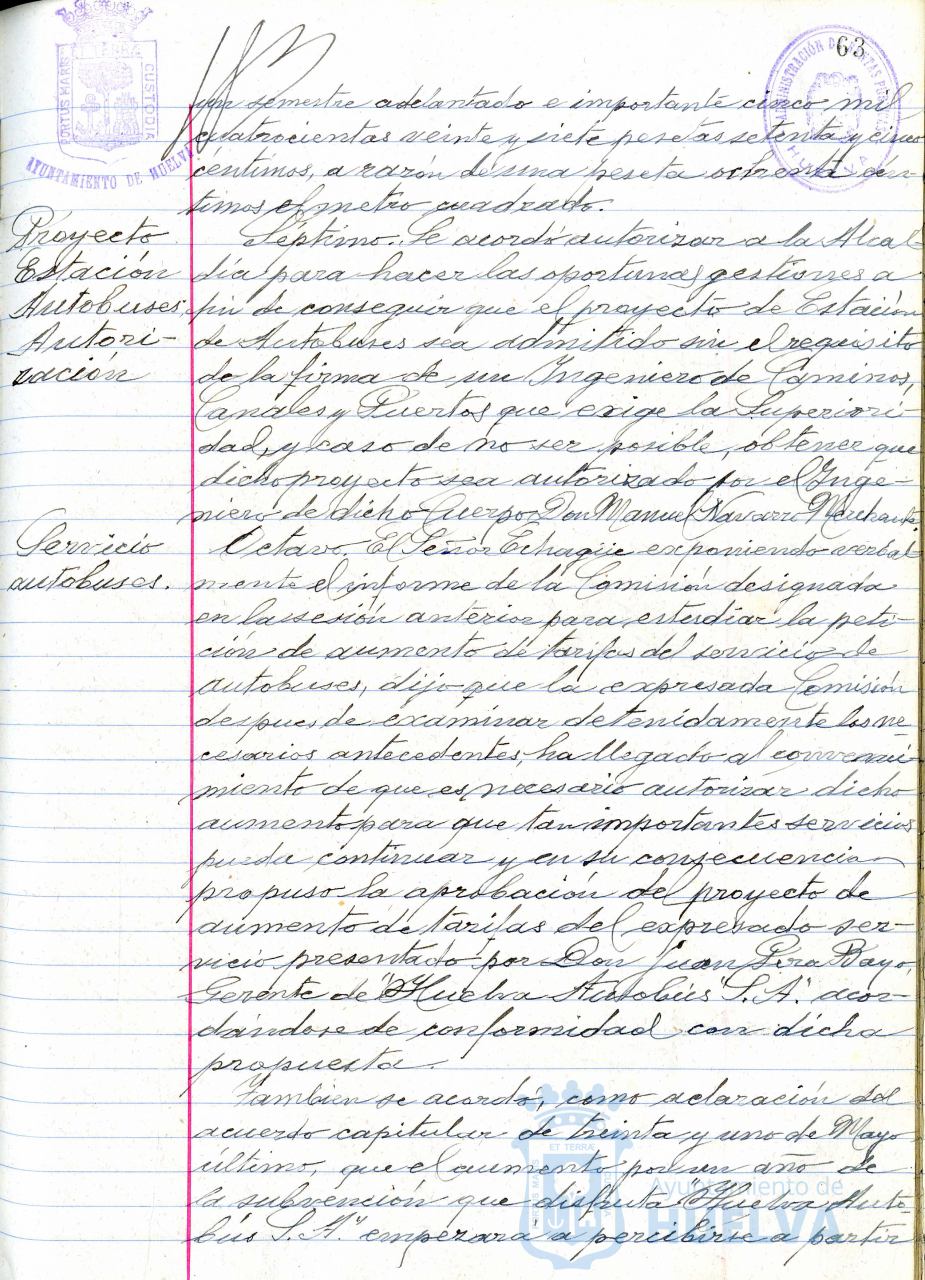 63
PORTUS MARIS ET TERRA CUSTODIA
AYUNTAMIENTO DE HUELVA
un semestre adelantado e importante cinco mil
cuatrocientas veinte y siete pesetas setenta y cinco
céntimos, a razón de una peseta ochenta cén-
timos el metro cuadrado.
Proyecto
Estación
Autobuses.
Autori-
zación
Séptimo. Se acordó autorizar a la Alcal-
día para hacer las oportunas gestiones a
fin de conseguir que el proyecto de Estación
de Autobuses sea admitido sin el requisito
de la firma de un Ingeniero de Caminos,
Canales y Puertos que exige la Superiori-
dad, y caso de no ser posible, obtener que
dicho proyecto sea autorizado por el Inge-
niero de dicho Cuerpo, Don Manuel Navarro
Servicio
autobuses.
Octavo. El Señor Echagüe exponiendo verbal
mente el informe de la Comisión designada
en la sesión anterior para estudiar la peti-
ción de aumento de tarifas del servicio de
autobuses, dijo que la expresada Comisión
despues de examinar detenidamente los ne
cesarios antecedentes, ha llegado al convenci-
miento de que es necesario autorizar dicho
aumento para que tan importantes servicios
pueda continuar y en su consecuencia
propuso la aprobación del proyecto de
aumento de tarifas del expresado ser-
vicio presentado por Don Juan Bayo,
Gerente de "Huelva Autobús S.A." acor-
dándose de conformidad con dicha
propuesta.
Tambien se acordó, como aclaración del
acuerdo capitular de treinta y uno de Mayo
último, que el aumento por un año de
la subvención que disfruta "Huelva Auto-
bús S.A." empezara a percibirse a partir
Ayuntamiento de
HUELVA